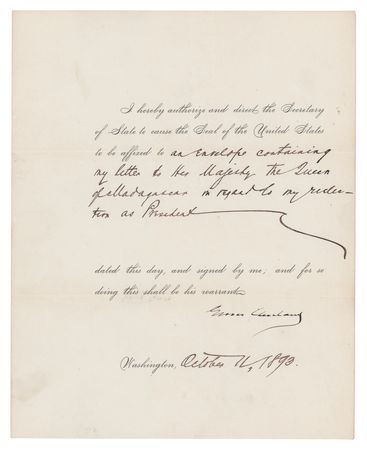 I hereby authorize and direct the Secretary
of State to cause the Seal of the United States
to be affixed to an envelope containing
my letter to Her Majesty the Queen
of Madagascar in regard to my reelec-
tion as President
dated this day, and signed by me; and for so
doing this shall be his warrant.
Grover Cleveland
Washington, October 12, 1893.